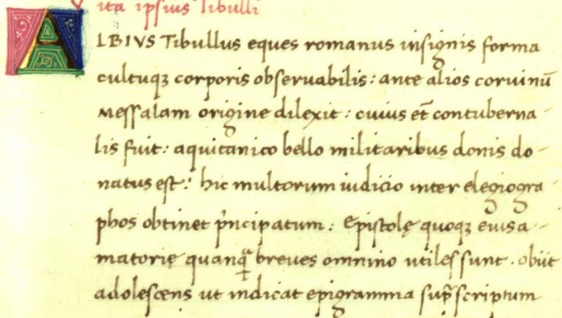 ita ipsius Tibulli
ALBIVS Tibullus eques romanus insignis forma
cultuqꝫ corporis obseruabilis: ante alios coruinū
Messalam origine dilexit: cuius et contuberna-
lis fuit: aquitanico bello militaribus donis do-
natus est: hic multorum iudicio inter elegiogra
phos obtinet pͥncipatum: Epistolę quoqꝫ eius a-
matorię quanqᷓ breues omnino utiles sunt. obiit
adolescens ut indicat epigramma supᷓscriptum